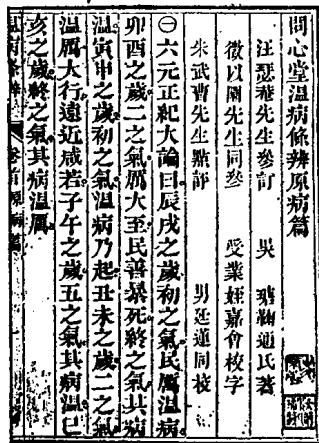 問心堂溫病條辨原病篇
汪瑟菴先生參訂　吳瑭鞠通氏著
徵以園先生同參　受業姪嘉會校字
朱武曹先生點評　男廷蓮同校
㊀六元正紀大論曰辰戌之歲初之氣民厲溫病
卯酉之歲二之氣厲大至民善暴死終之氣其病
溫寅申之歲初之氣溫病乃起丑未之歲二之氣
溫厲大行遠近咸若子午之歲五之氣其病溫巳
亥之歲終之氣其病溫厲
溫病條辨　卷首原病篇